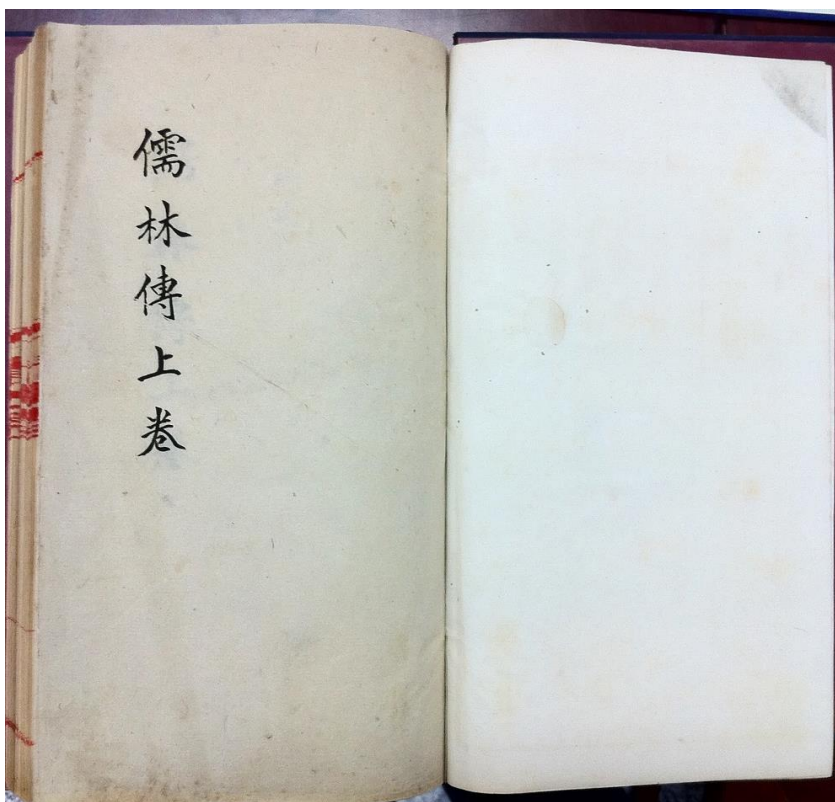 儒林傳上卷